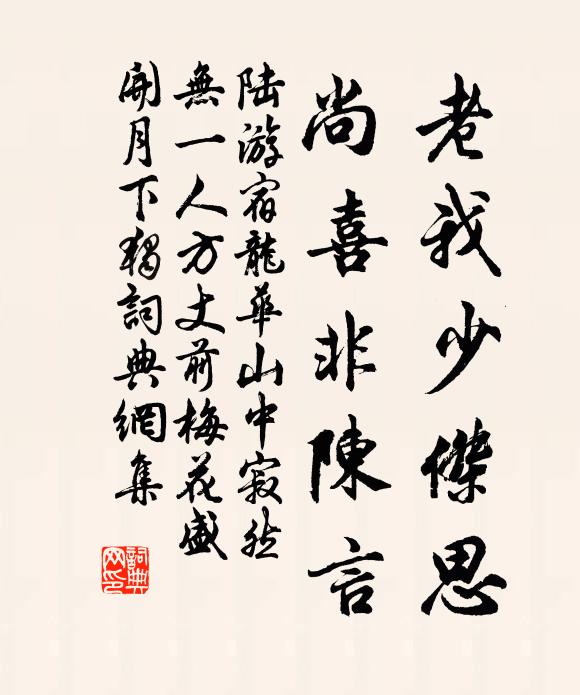 老我少傑思
尚喜非陳言
陸游宿龍華山中寂然
無一人方丈前梅花盛
開月下獨詞典網集
詞典
网印